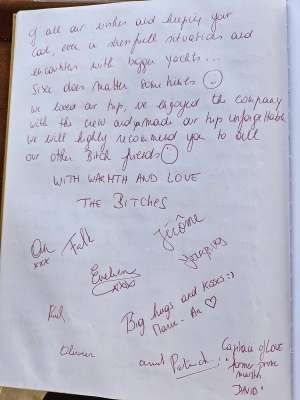 of all our wishes and keeping your
cool, even in stressfull situations and
encounters with bigger yachts...
Size does matter sometimes
We loved our trip, we enjoyed the company
with the crew and you made our trip unforgettable
we will highly recommend you to all
our other Bitch friends
WITH WARMTH AND LOVE
THE BITCHES
Jérôme
xxx
Evelien
xxxx
Big hugs and kisses :)
Marie-An ♡
Olivier
and Patrick:
Captain of Love
"former prime
minister
DAVID"